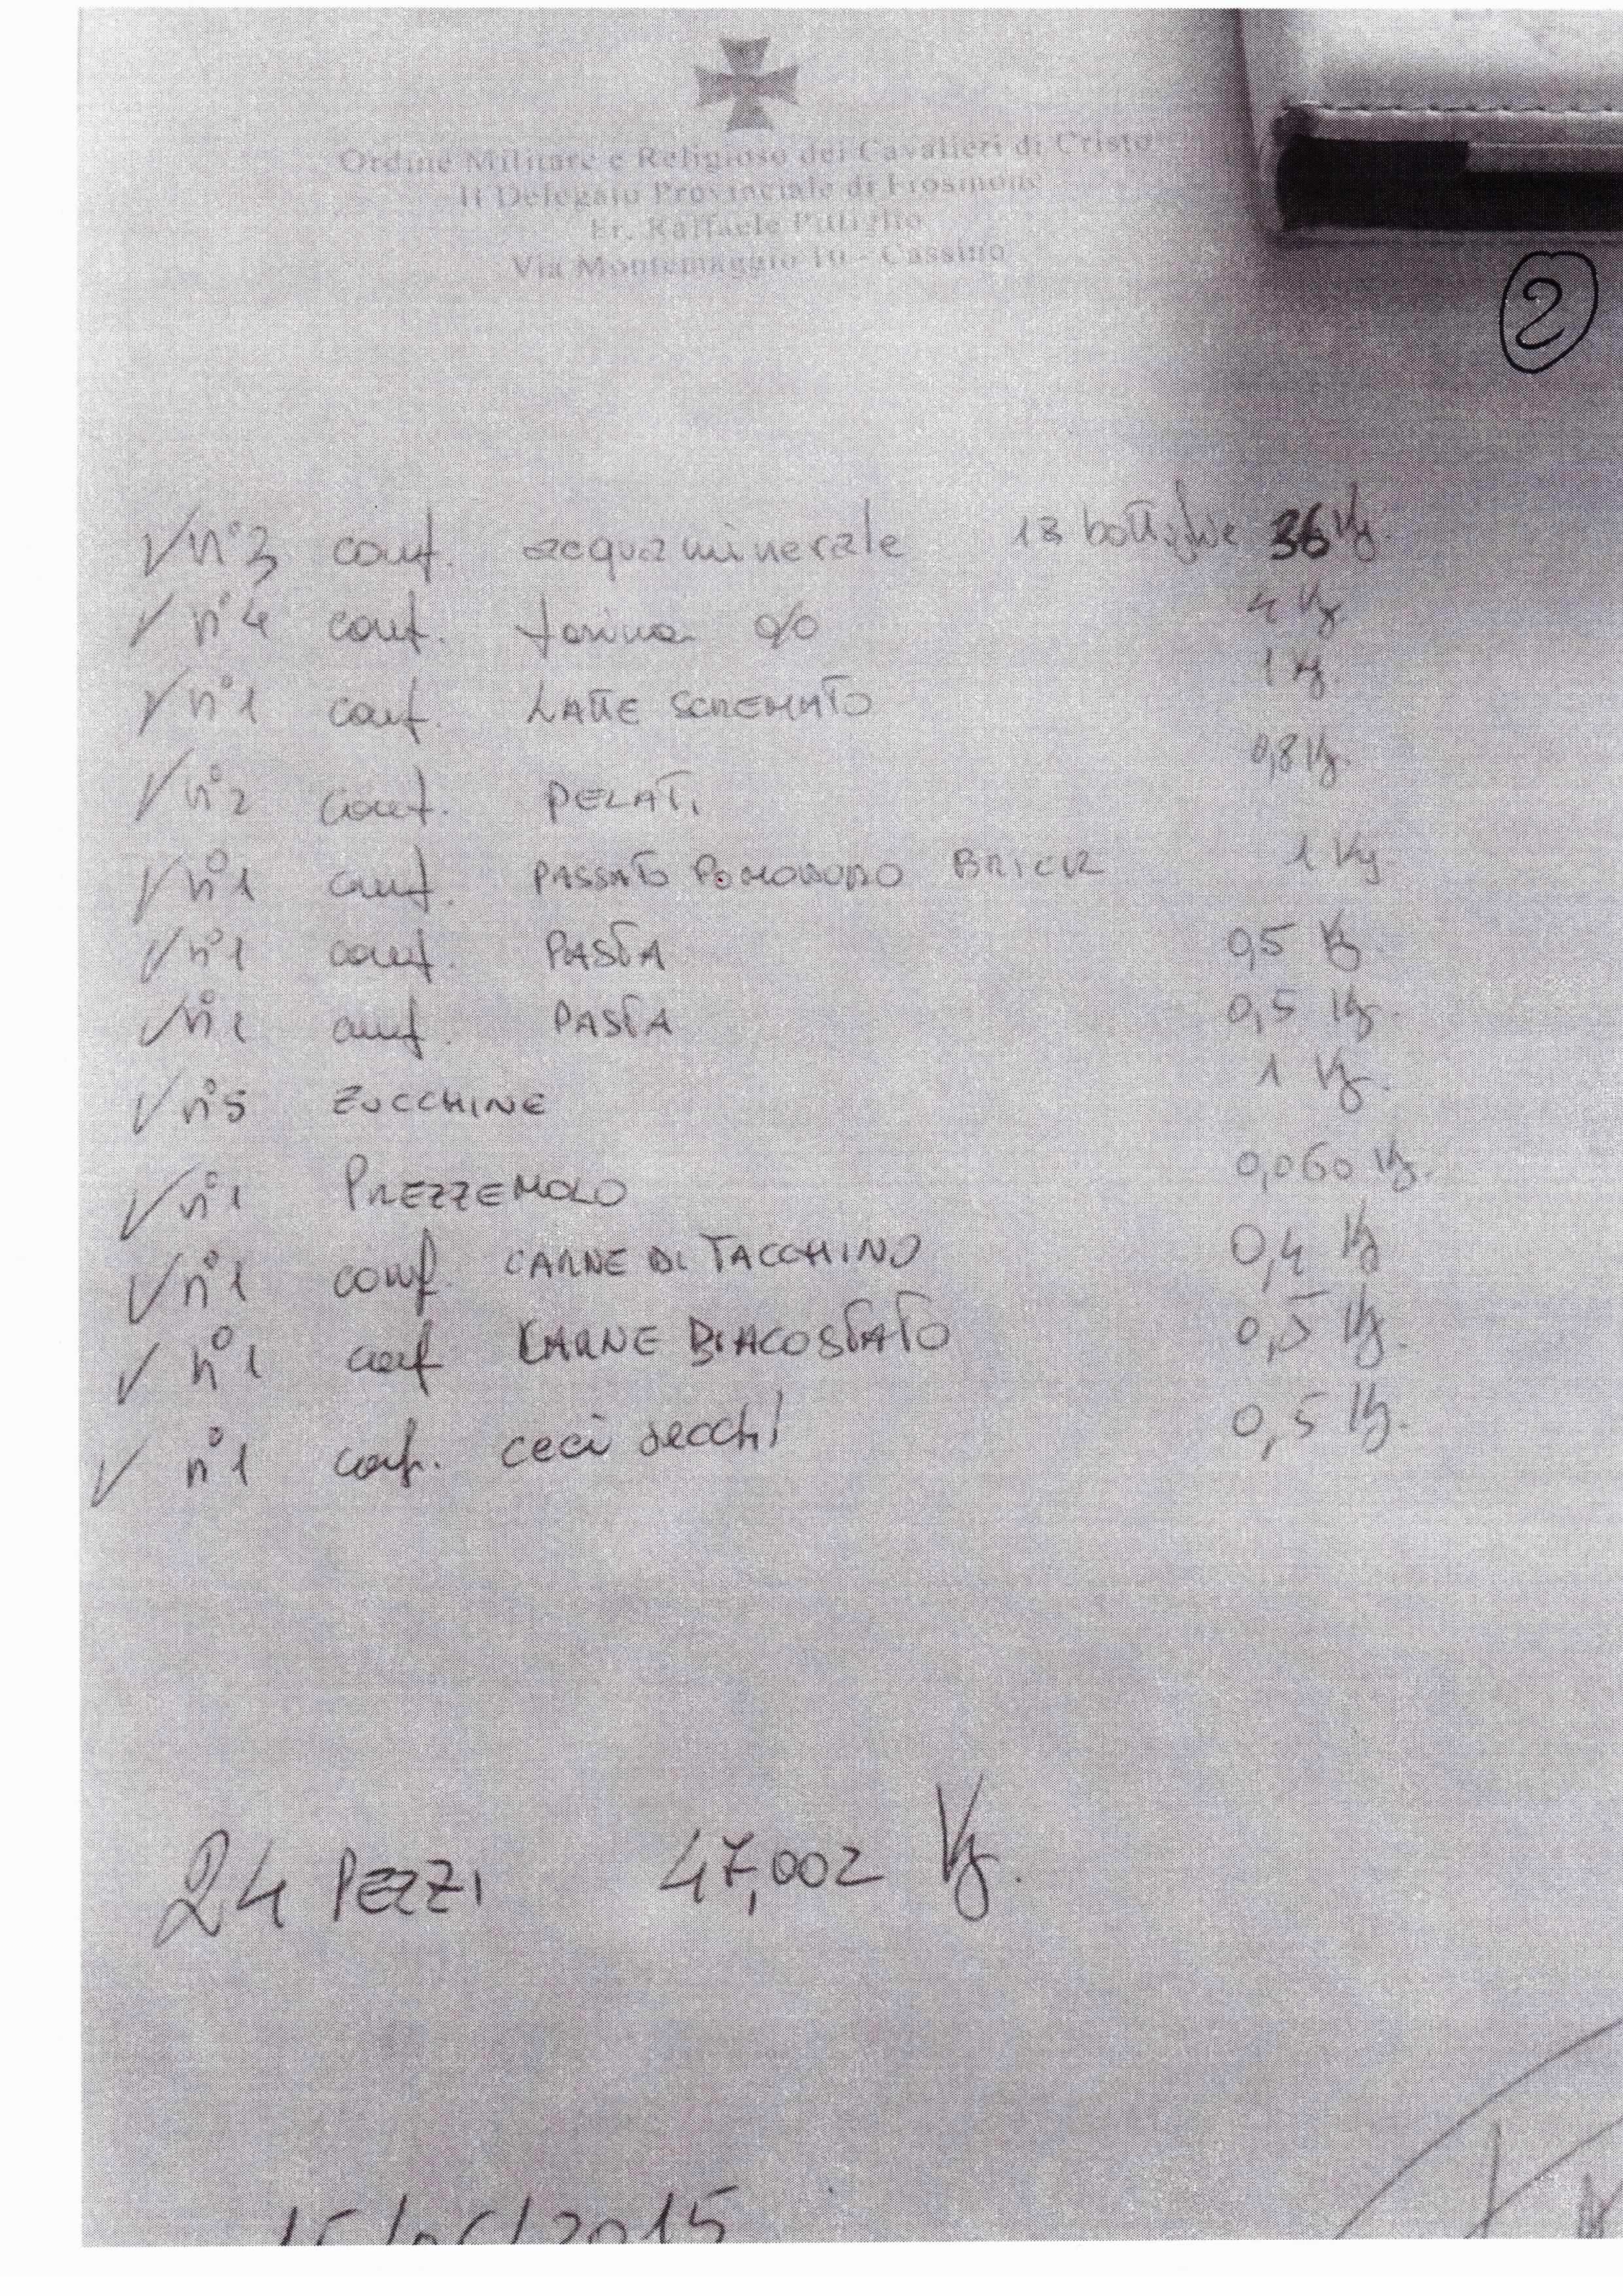 Ordine Militare e Religioso dei Cavalieri di Cristo
Il Delegato Provinciale di Frosinone
Fr. Raffaele
Via Montemaggio 10 - Cassino
2
n°3 conf. acqua minerale 18 bottiglie 36 Kg.
n°4 conf. farina 0/0 4 Kg.
n°1 conf. LATTE SCREMATO 1 Kg.
n°2 conf. PELATI 0,8 Kg.
n°1 conf. PASSATO POMODORO BRICK 1 Kg.
n°1 conf. PASTA 0,5 Kg.
n°1 conf. PASTA 0,5 Kg.
n°5 ZUCCHINE 1 Kg.
n°1 PREZZEMOLO 0,060 Kg.
n°1 conf. CARNE DI TACCHINO 0,4 Kg
n°1 conf CARNE 0,5 Kg.
n°1 conf. ceci secchi 0,5 Kg.
24 PEZZI 47,002 Kg.
2015